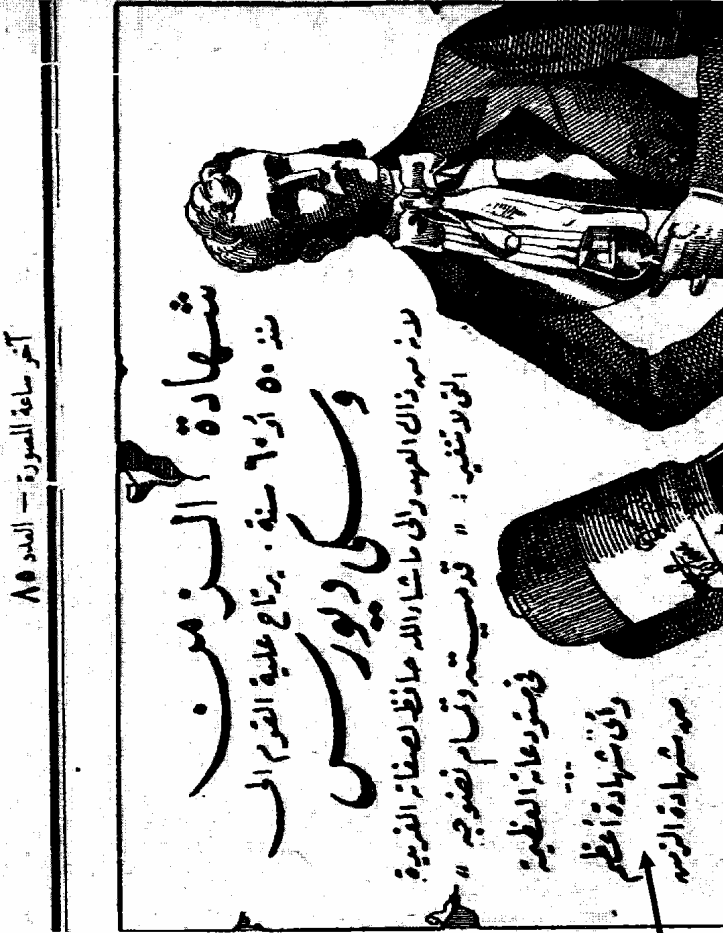 آخر ساعة المصورة — العدد ٨٥
شهادة الزمن
منذ ٥٠ أو ٦٠ سنة . يرتاح علية القوم الى
وسكى ديورس
لأنه من ذاك العهد والى ماشاء الله حافظ لصفاته الفريدة
التى لا تتغير : « قدميته وتمام نضوجه »
فى مستودعاته العظيمة
وأى شهادة أعظم
من شهادة الزمن